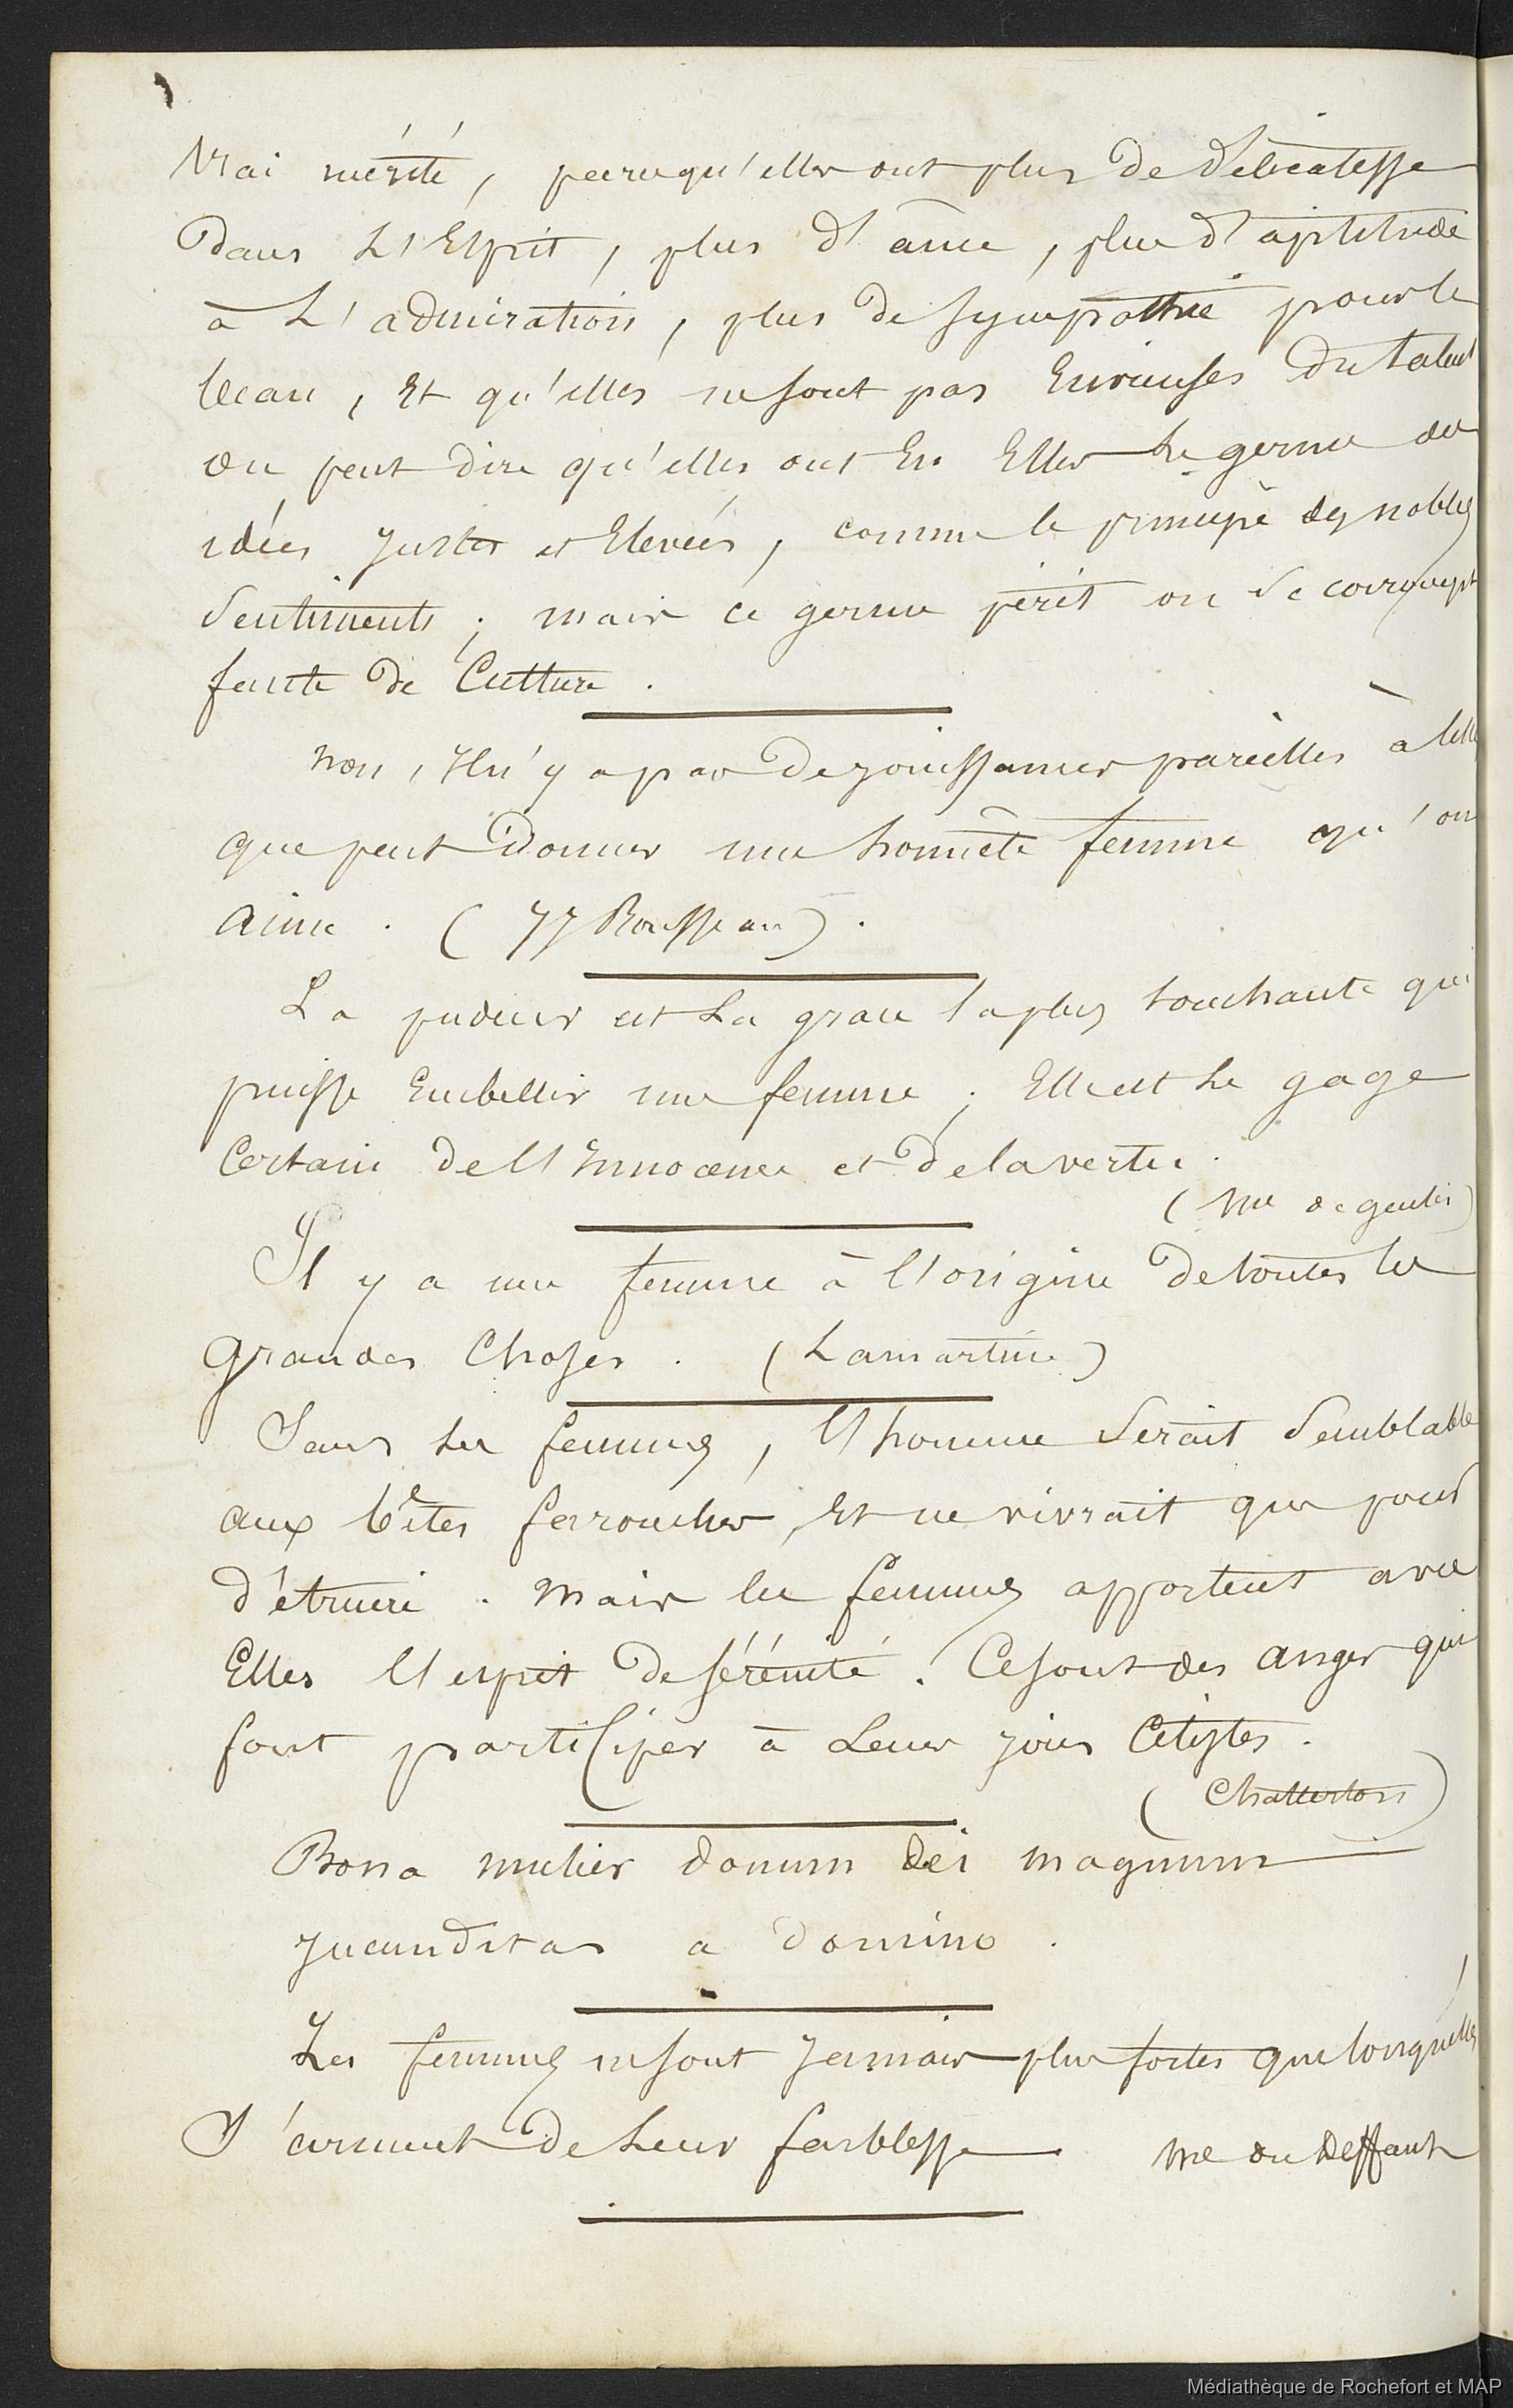 Vrai mérité, parcequ'elles ont plus de délicatesse
dans L'Esprit, plus d'âme, plus d'aptitude
à L'admiration, plus de sympathie pour le
beau, Et qu'elles ne sont pas Envieuses du talent
on peut dire qu'elles ont En Elles Le germe des
idées Justes et Elevées, comme le principe des nobles
sentiments; mais ce germe périt ou se corrompt
faute de Culture.
non, Il n'y a pas de jouissances pareilles à celles
que peut donner une honnête femme qu'on
aime. (JJ Rousseau).
La pudeur est La grace la plus touchante qui
puisse Embellir une femme; Elle est Le gage
Certain de l'Innocence et de la vertu.
(Me de genlis)
Il y a une femme à l'origine de toutes les
grandes Choses. (Lamartine)
Sans les femmes, l'homme serait semblable
aux bêtes farrouches, Et ne vivrait que pour
d'étruire. Mais les femmes apportent avec
Elles l'esprit de sérénité. Ce sont des anges qui
font participer à Leurs joies Célestes.
(Chatterton)
Bona mulier donum dei magnum
Jucunditas a domino.
Les femmes ne sont Jamais plus fortes que lorsqu'elles
S'arment de Leur faiblesse Me du Deffant
Médiathèque de Rochefort et MAP